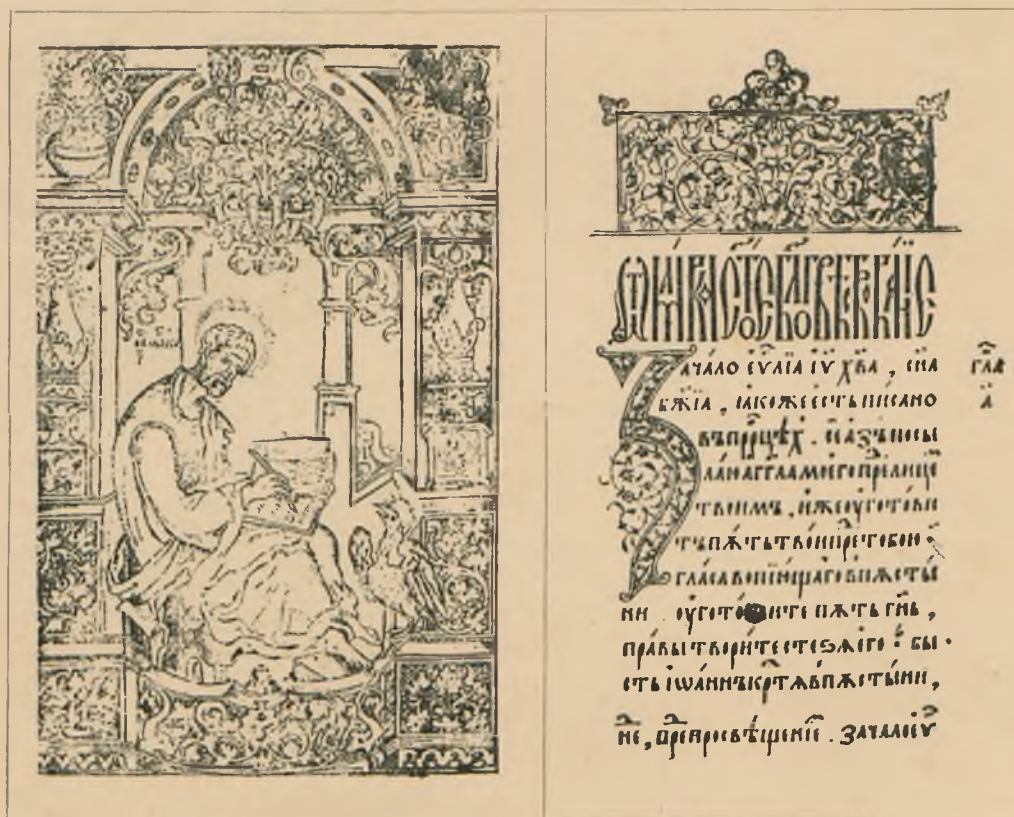 ѿ мр́ка ст҃ое бл҃говѣствованїе
Зача́ло еѵ҃лїа іѵ҃ хв҃а , сн҃а
бж҃їа , ꙗкожеестьписано
въпррⷪ҇цѣⷯ . сеазъпосы
лѫагг҃ламоегопреⷣлицеⷨ
твоимъ , ижеоуготови
тъпѫтьтвоипреⷣтобою ·
гласавопїющаговпѫсты
ни . оуготовитепѫтьгн҃ь ,
пра́вытвори́тестеѕѧего · бы
сть іѡа́ннъкрⷭ҇тѧвпѫсты́ни ,
гла҃
а҃
не҃ , преⷣпросвѣщенїеⷨ . Зачалоеѵ҃